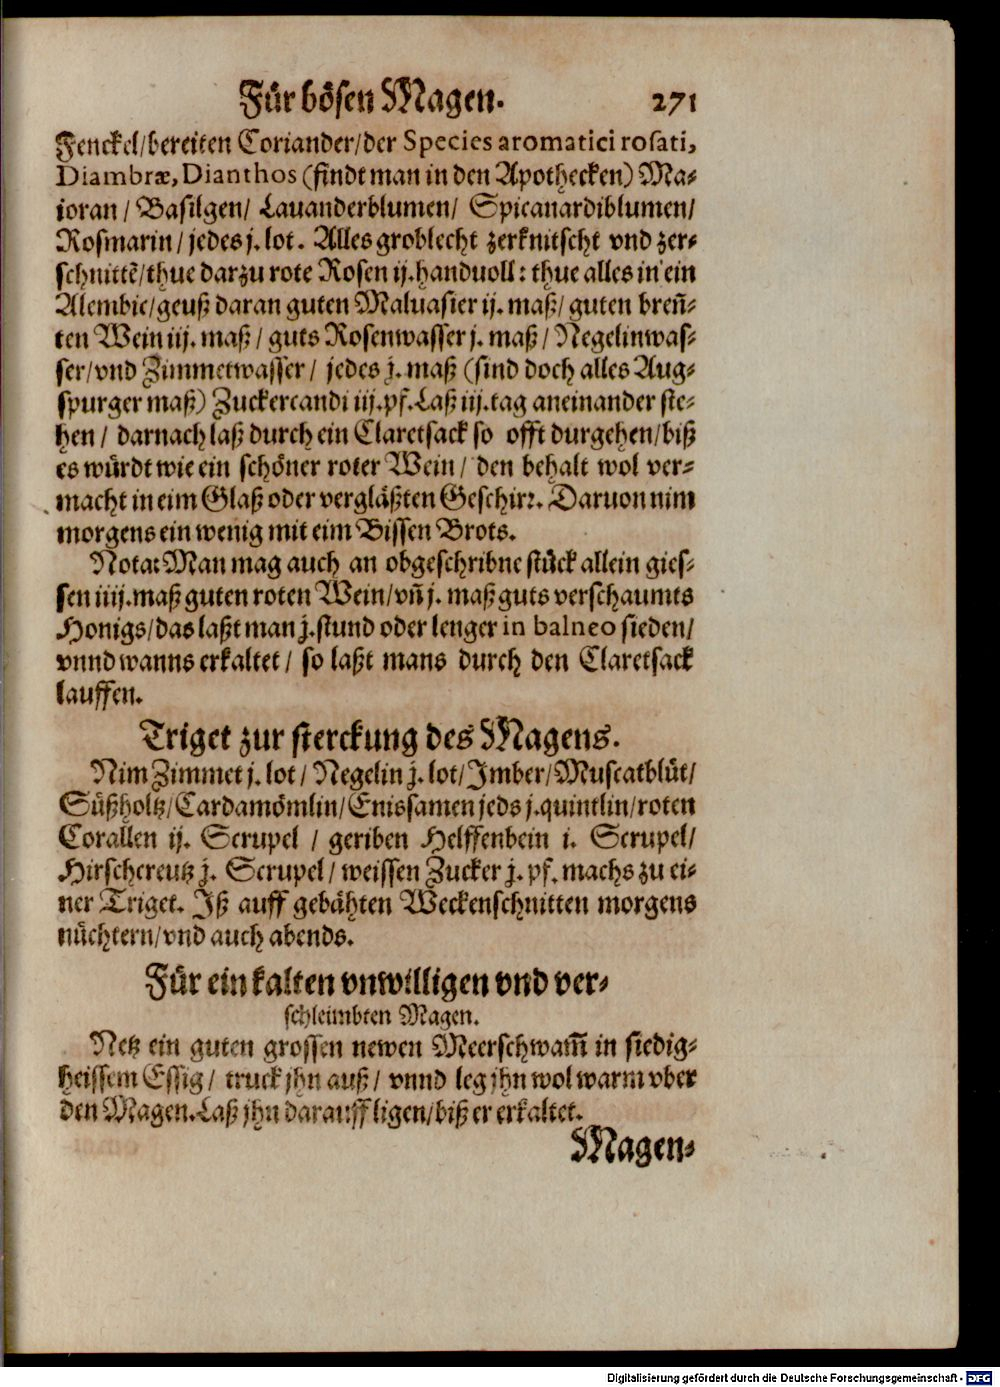 Für bösen Magen. 271
Fenckel/bereiten Coriander/der Species aromatici rosati,
Diambræ, Dianthos (findt man in den Apothecken) Ma-
ioran / Basilgen/ Lauanderblumen/ Spicanardiblumen/
Rosmarin / jedes j. lot. Alles groblecht zerknitscht vnd zer-
schnittẽ/thue darzu rote Rosen ij. handuoll: thue alles in ein
Alembic/geuß daran guten Maluasier ij. maß/ guten breñ-
ten Wein iij. maß / guts Rosenwasser j. maß / Negelinwas-
ser/vnd Zimmetwasser / jedes j. maß (sind doch alles Aug-
spurger maß) Zuckercandi iij. pf. Laß iij. tag aneinander ste-
hen / darnach laß durch ein Claretsack so offt durgehen/biß
es würdt wie ein schöner roter Wein / den behalt wol ver-
macht in eim Glaß oder vergläßten Geschirr. Daruon nim
morgens ein wenig mit eim Bissen Brots.
Nota: Man mag auch an obgeschribne stück allein gies-
sen iiij. maß guten roten Wein/vñ j. maß guts verschaumts
Honigs/das laßt man j. stund oder lenger in balneo sieden/
vnnd wanns erkaltet / so laßt mans durch den Claretsack
lauffen.
Triget zur sterckung des Magens.
Nim Zimmet j. lot / Negelin j. lot/ Imber/ Muscatblüt/
Süßholtz/Cardamömlin/Enissamen jeds j. quintlin/roten
Corallen ij. Scrupel / geriben Helffenbein i. Scrupel/
Hirschcreutz j. Scrupel / weissen Zucker j. pf. machs zu ei-
ner Triget. Iß auff gebähten Weckenschnitten morgens
nüchtern/vnd auch abends.
Für ein kalten vnwilligen vnd ver-
schleimbten Magen.
Netz ein guten grossen newen Meerschwam̃ in siedig-
heissem Essig / truck jhn auß / vnnd leg jhn wol warm vber
den Magen. Laß jhn darauff ligen/biß er erkaltet.
Magen-
Digitalisierung gefördert durch die Deutsche Forschungsgemeinschaft - DFG